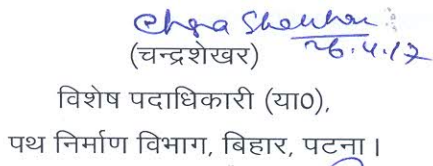 Chandra Shekhar
26.4.17
(चन्द्रशेखर)
विशेष पदाधिकारी (या०),
पथ निर्माण विभाग, बिहार, पटना।